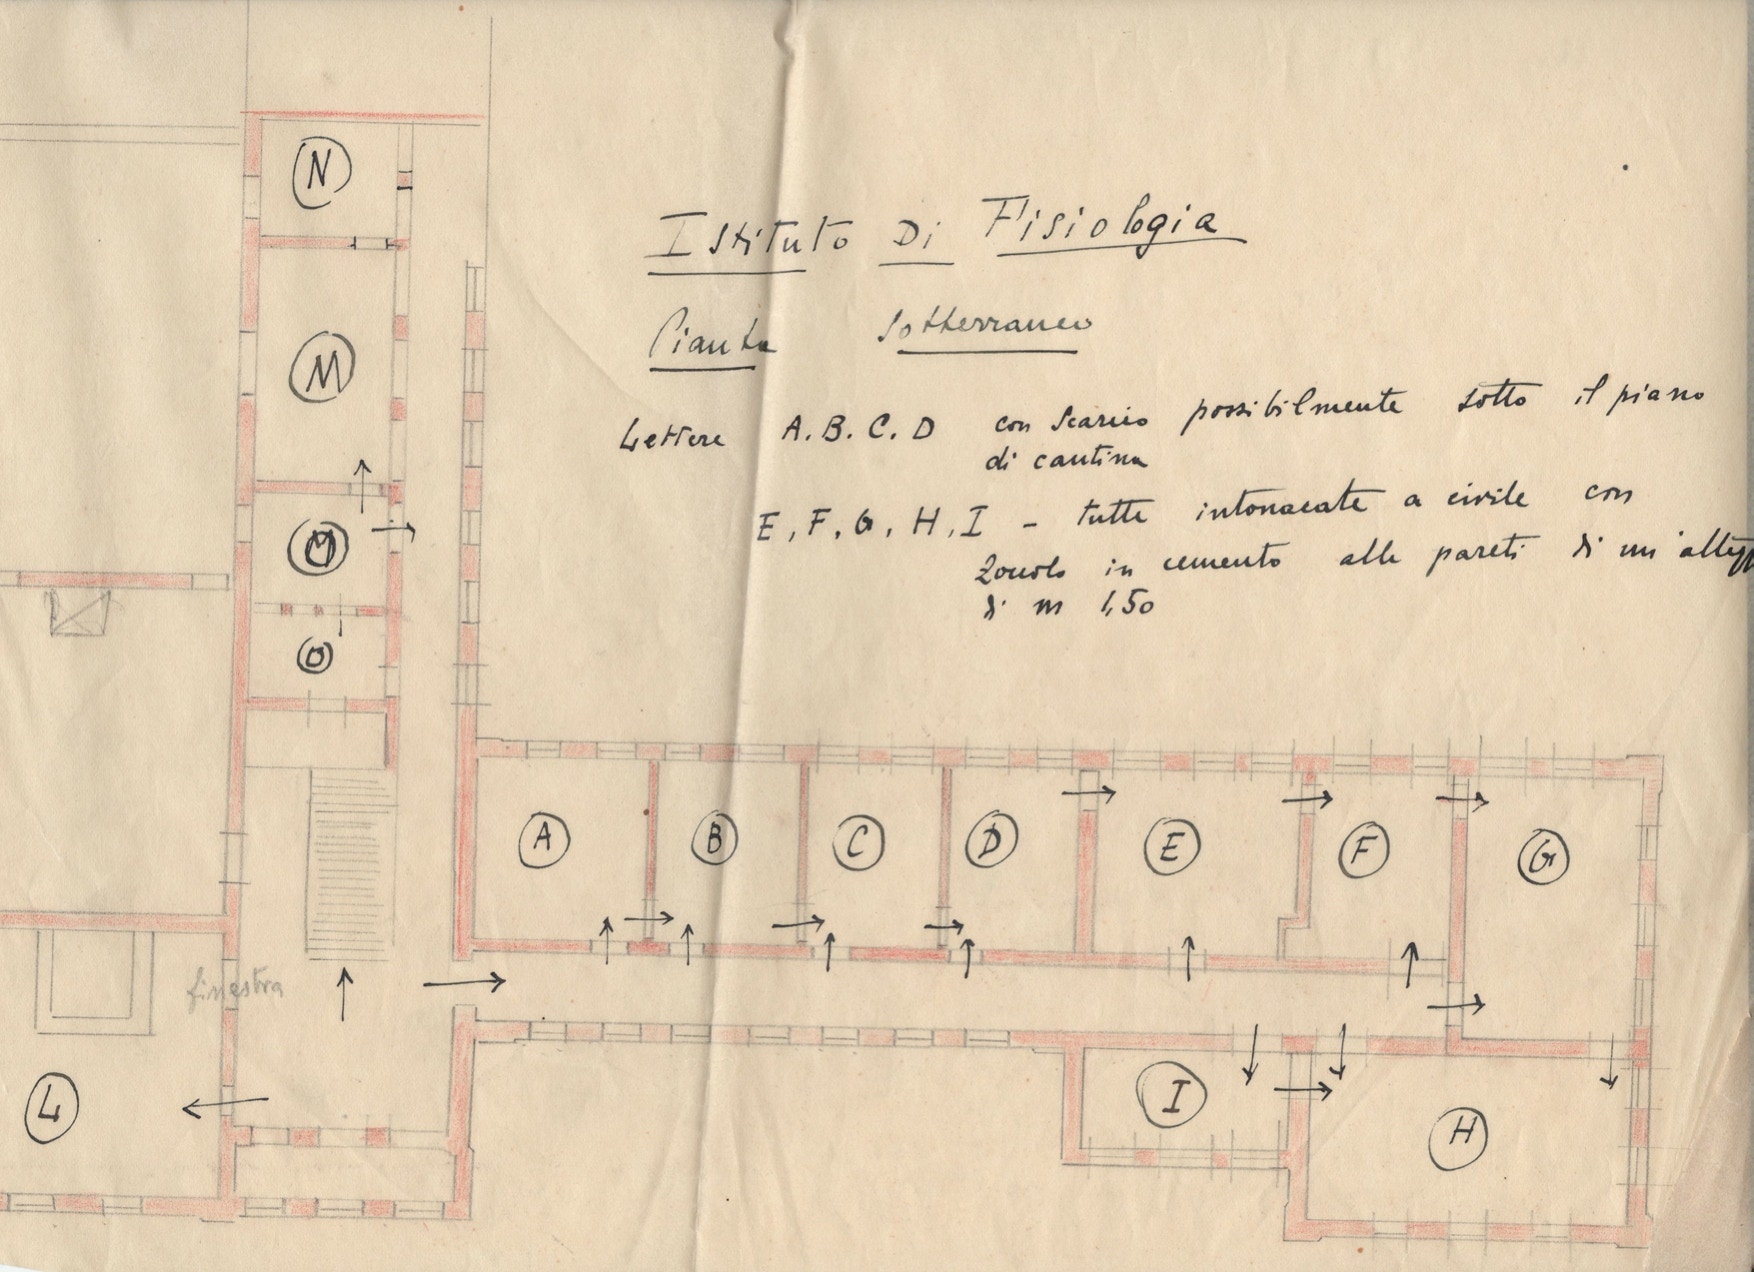 Istituto Di Fisiologia
Pianta Sotterraneo
Lettere A.B.C.D con scarico possibilmente sotto il piano
di cantina
E, F, G, H, I - tutte intonacate a civile con
zoccolo in cemento alle pareti di un'altezz
di m 1,50
N
M
M
O
A
B
C
D
E
F
G
finestra
L
I
H